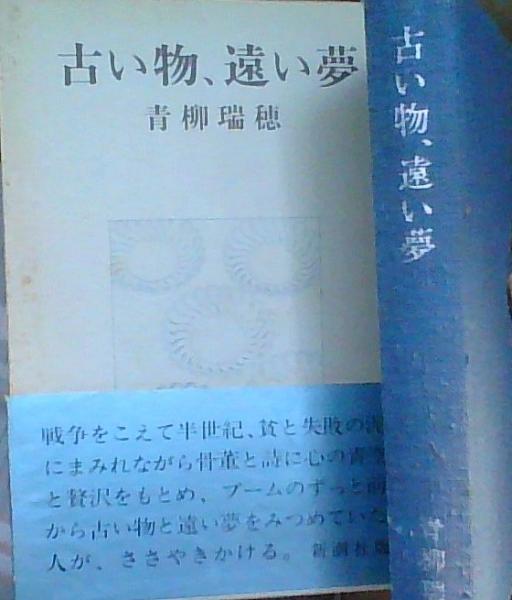 古い物、遠い夢
青柳瑞穂
戦争をこえて半世紀、貧と失敗の
にまみれながら骨董と詩に心の青
と贅沢をもとめ、ブームのずっと前
から古い物と遠い夢をみつめていた
人が、ささやきかける。 新潮社版
古い物、遠い夢
青柳瑞